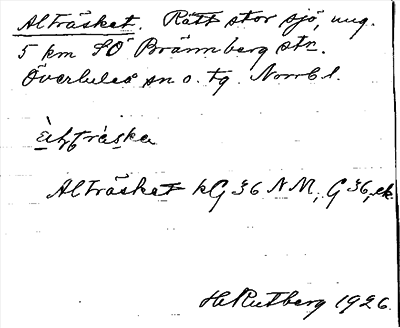 Alträsket. Rätt stor sjö, ung.
5 km SÖ Brännberg str.
Överluleå sn o. tg. Norrb l.
àltràska
Alträsket kG 36 NM; G 36, ek
H Rutberg 1926.